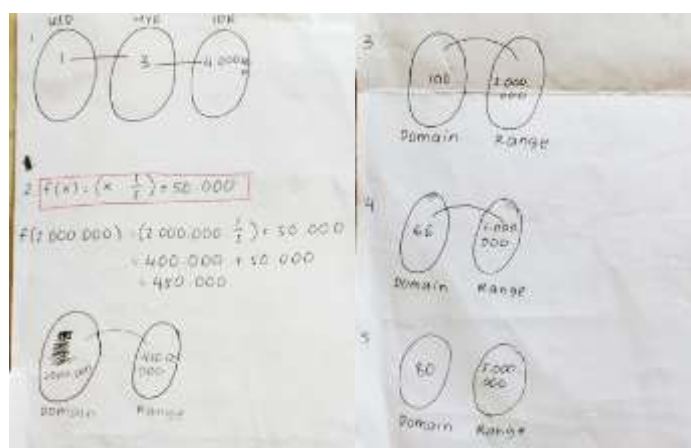 USD MYR IDR
1
1 3 4.000
2 f(x) = (x 1/5) + 50.000
f(2.000.000) = (2.000.000 1/5) + 50.000
= 400.000 + 50.000
= 450.000
2.000.000 450.000
Domain Range
3
100 2.000.000
Domain Range
4
000
Domain Range
5
80
000
Domain Range